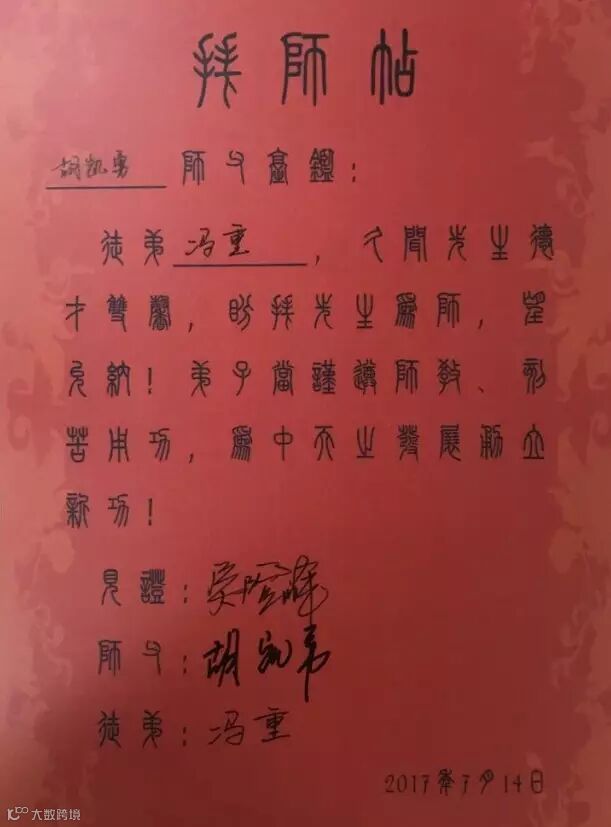 拜師帖
胡凯勇 師父臺鑑：
徒弟 冯重 ，久聞先生德
才雙馨，盼拜先生爲師，望
允納！弟子當謹遵師教、刻
苦用功，爲中天之發展勵立
新功！
見證：
師父：胡凯勇
徒弟：冯重
2017年7月14日
大数跨境